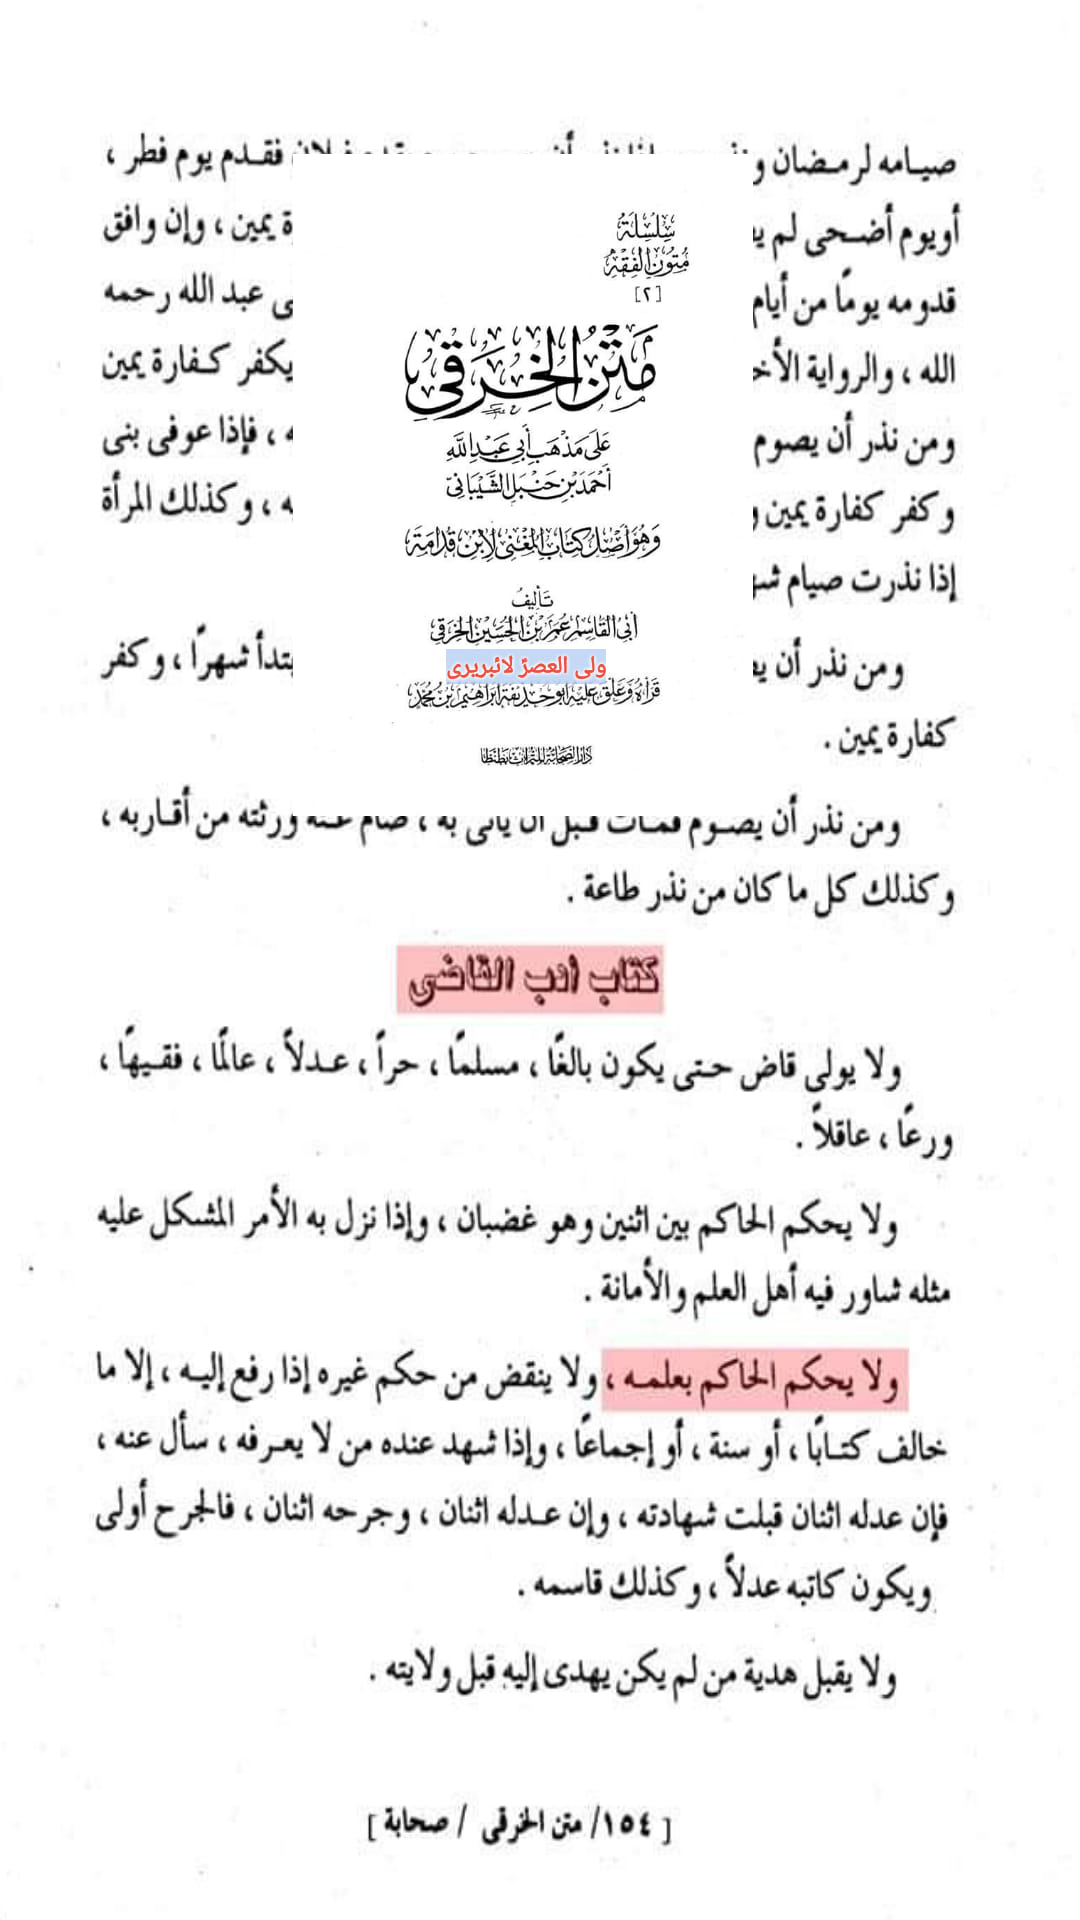 صيامه لرمضان
فقدم يوم فطر ،
أويوم أضحى لم
يمين ، وإن وافق
قدومه يومًا من أيام
عبد الله رحمه
الله ، والرواية
يكفر كفارة يمين
ومن نذر أن يصوم
، فإذا عوفى بنى
وكفر كفارة يمين
، وكذلك المرأة
إذا نذرت صيام
ومن نذر أن
شهرًا ، وكفر
كفارة يمين .
سِلْسِلَةُ
مُتُونِ الفِقْهِ
[٢]
مَتْنُ الخِرَقِي
عَلَى مَذْهَبِ أَبِي عَبْدِ اللَّهِ
أَحْمَدَ بْنِ حَنْبَلِ الشَّيْبَانِيِّ
وَهُوَ أَصْلُ كِتَابِ المُغْنِي لِابْنِ قُدَامَةَ
تَأْلِيفُ
أَبِي القَاسِمِ عُمَرَ بْنِ الحُسَيْنِ الخِرَقِي
ولی العصرؑ لائبریری
قَرَأَهُ وَعَلَّقَ عَلَيْهِ أَبُو حُذَيْفَةَ إِبْرَاهِيمُ بْنُ مُحَمَّد
دَارُ الصَّحَابَةِ لِلتُّرَاثِ بِطَنْطَا
ومن نذر أن يصوم فمات قبل أن يأتى به ، صام عنه ورثته من أقاربه ،
وكذلك كل ما كان من نذر طاعة .
كتاب أدب القاضى
ولا يولى قاض حتى يكون بالغًا ، مسلمًا ، حراً ، عدلاً ، عالمًا ، فقيهًا ،
ورعًا ، عاقلاً .
ولا يحكم الحاكم بين اثنين وهو غضبان ، وإذا نزل به الأمر المشكل عليه
مثله شاور فيه أهل العلم والأمانة .
ولا يحكم الحاكم بعلمه ، ولا ينقض من حكم غيره إذا رفع إليه ، إلا ما
خالف كتابًا ، أو سنة ، أو إجماعًا ، وإذا شهد عنده من لا يعرفه ، سأل عنه ،
فإن عدله اثنان قبلت شهادته ، وإن عدله اثنان ، وجرحه اثنان ، فالجرح أولى
ويكون كاتبه عدلاً ، وكذلك قاسمه .
ولا يقبل هدية من لم يكن يهدى إليه قبل ولايته .
[ ١٥٤/ متن الخرقى / صحابة ]